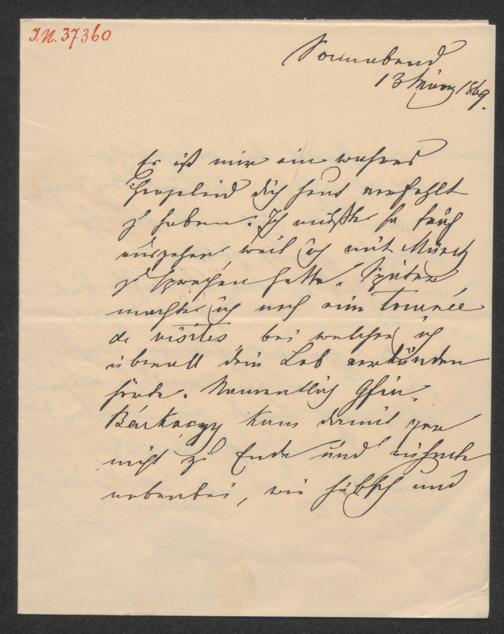 I.N. 37360
Sonnabend
13 März 1869.
Es ist mir ein wahres
Herzeleid dich heut verfehlt
zu haben. Ich mußte so früh
ausgehen, weil ich mit Münch
zu sprechen hatte. Später
machte ich noch eine Tournée
de visites bei welcher ich
überall dein Lob verkünden
hörte. Namentlich Gfin.
Bárkóczy kam damit gar
nicht zu Ende und rühmte
nebenbei, wie hübsch und